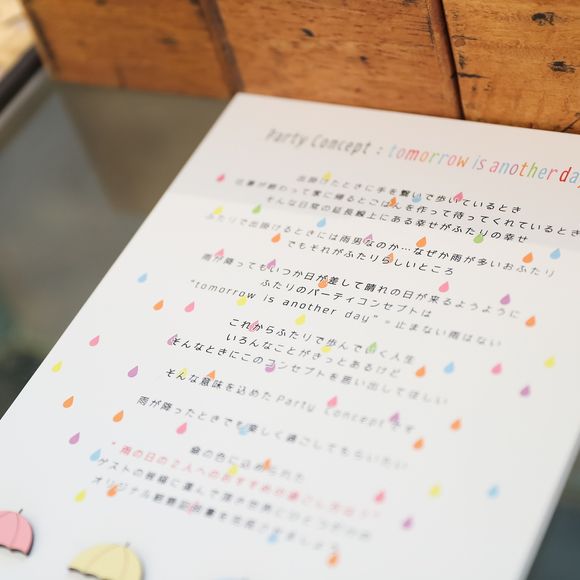 Party Concept : tomorrow is another da
出掛けたときに手を繋いで歩いているとき
仕事が終わって家に帰るとごはんを作って待ってくれているとき
そんな日常の延長線上にある幸せがふたりの幸せ
ふたりで出掛けるときには雨男なのか…なぜか雨が多いおふたり
でもそれがふたりらしいところ
雨が降ってもいつか日が差して晴れの日が来るようように
ふたりのパーティコンセプトは
"tomorrow is another day" = 止まない雨はない
これからふたりで歩んでいく人生
いろんなことがきっとあるけど
そんなときにこのコンセプトを思い出してほしい
そんな意味を込めたParty Conceptです
雨が降ったときでも楽しく過ごしてもらいたい
傘の色に込められた
"雨の日の2人へのおすすめの過ごし方は?"
ゲストの皆様に選んで
オリジナル結婚証明書を完成させましょう